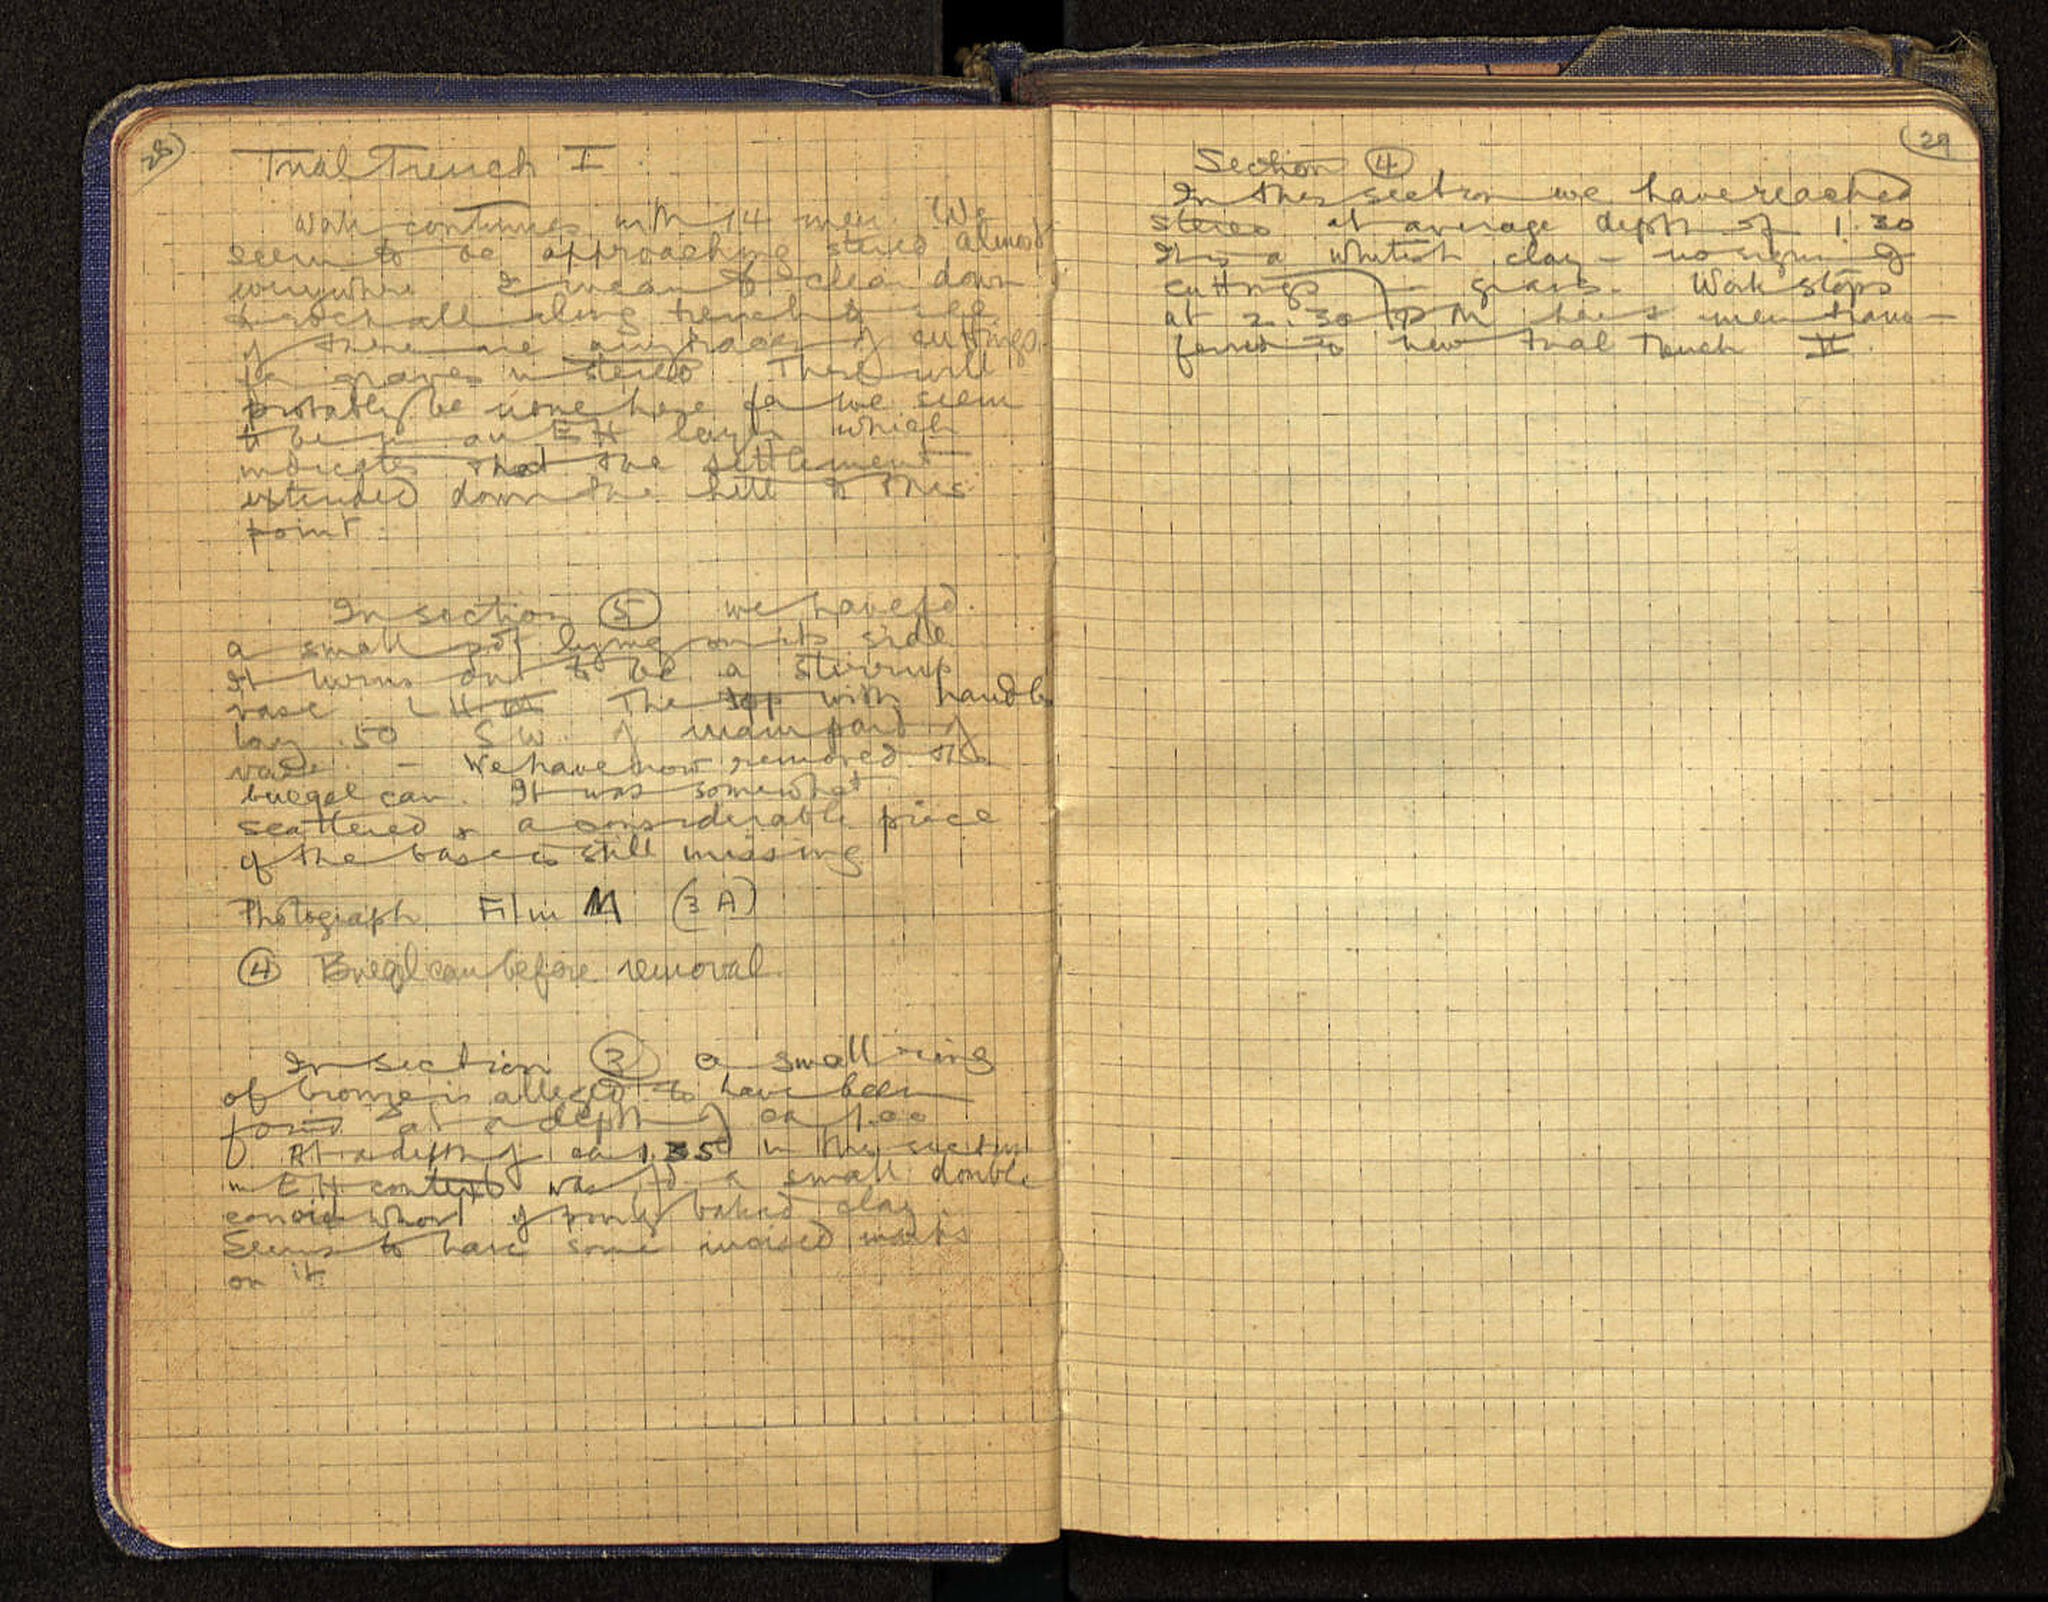 28
Trial Trench I
Work continues with 14 men. We
seem to be approaching stereo almost
everywhere & mean to clean down
to all along trench to see
if there are any traces of cuttings
for graves in stereo There will
probably be none here for we seem
to be in an EH layer which
indicates that the settlement
extended down the hill to this
point.
In section ⑤ we have fd.
a small pot lying on its side
It turns out to be a stirrup
vase LH III The top with handles
lay .50 S W. of main part of
vase. - We have now removed the
buegel can. It was somewhat
scattered & a considerable piece
of the base is still missing
Photograph Film M (3 A)
④ Buegelcan before removal.
In section ③ a small ring
of bronze is alleged to have been
found at a depth of ca 1.00
At a depth of ca 1.35 in this section
in EH context was fd. a small double
conoid whorl of poorly baked clay.
Seems to have some incised marks
on it.
29
Section ④
In this section we have reached
stereo at average depth of 1.30
It is a whitish clay - no sign of
cuttings for graves. Work stops
at 2.30 PM here & men trans-
ferred to new Trial Trench II.